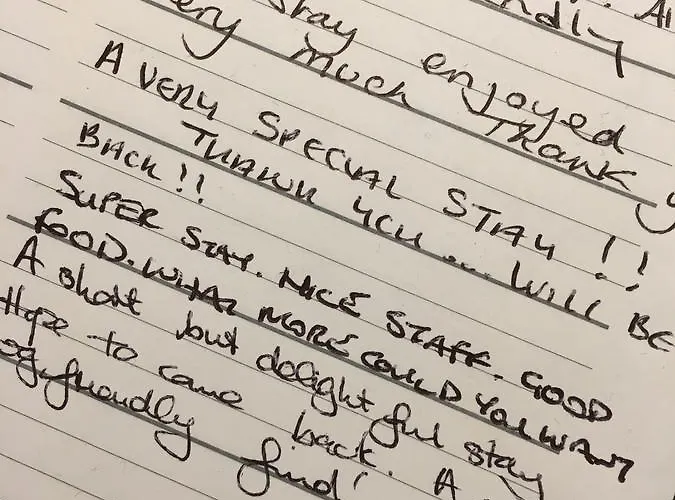 Stay
very much enjoyed
Thank
A VERY SPECIAL STAY!!
THANK YOU ... WILL BE
BACK!!
SUPER STAY. NICE STAFF. GOOD
FOOD. WHAT MORE COULD YOU WANT
A short but delightful stay
Hope to come back. A
dog-friendly find!